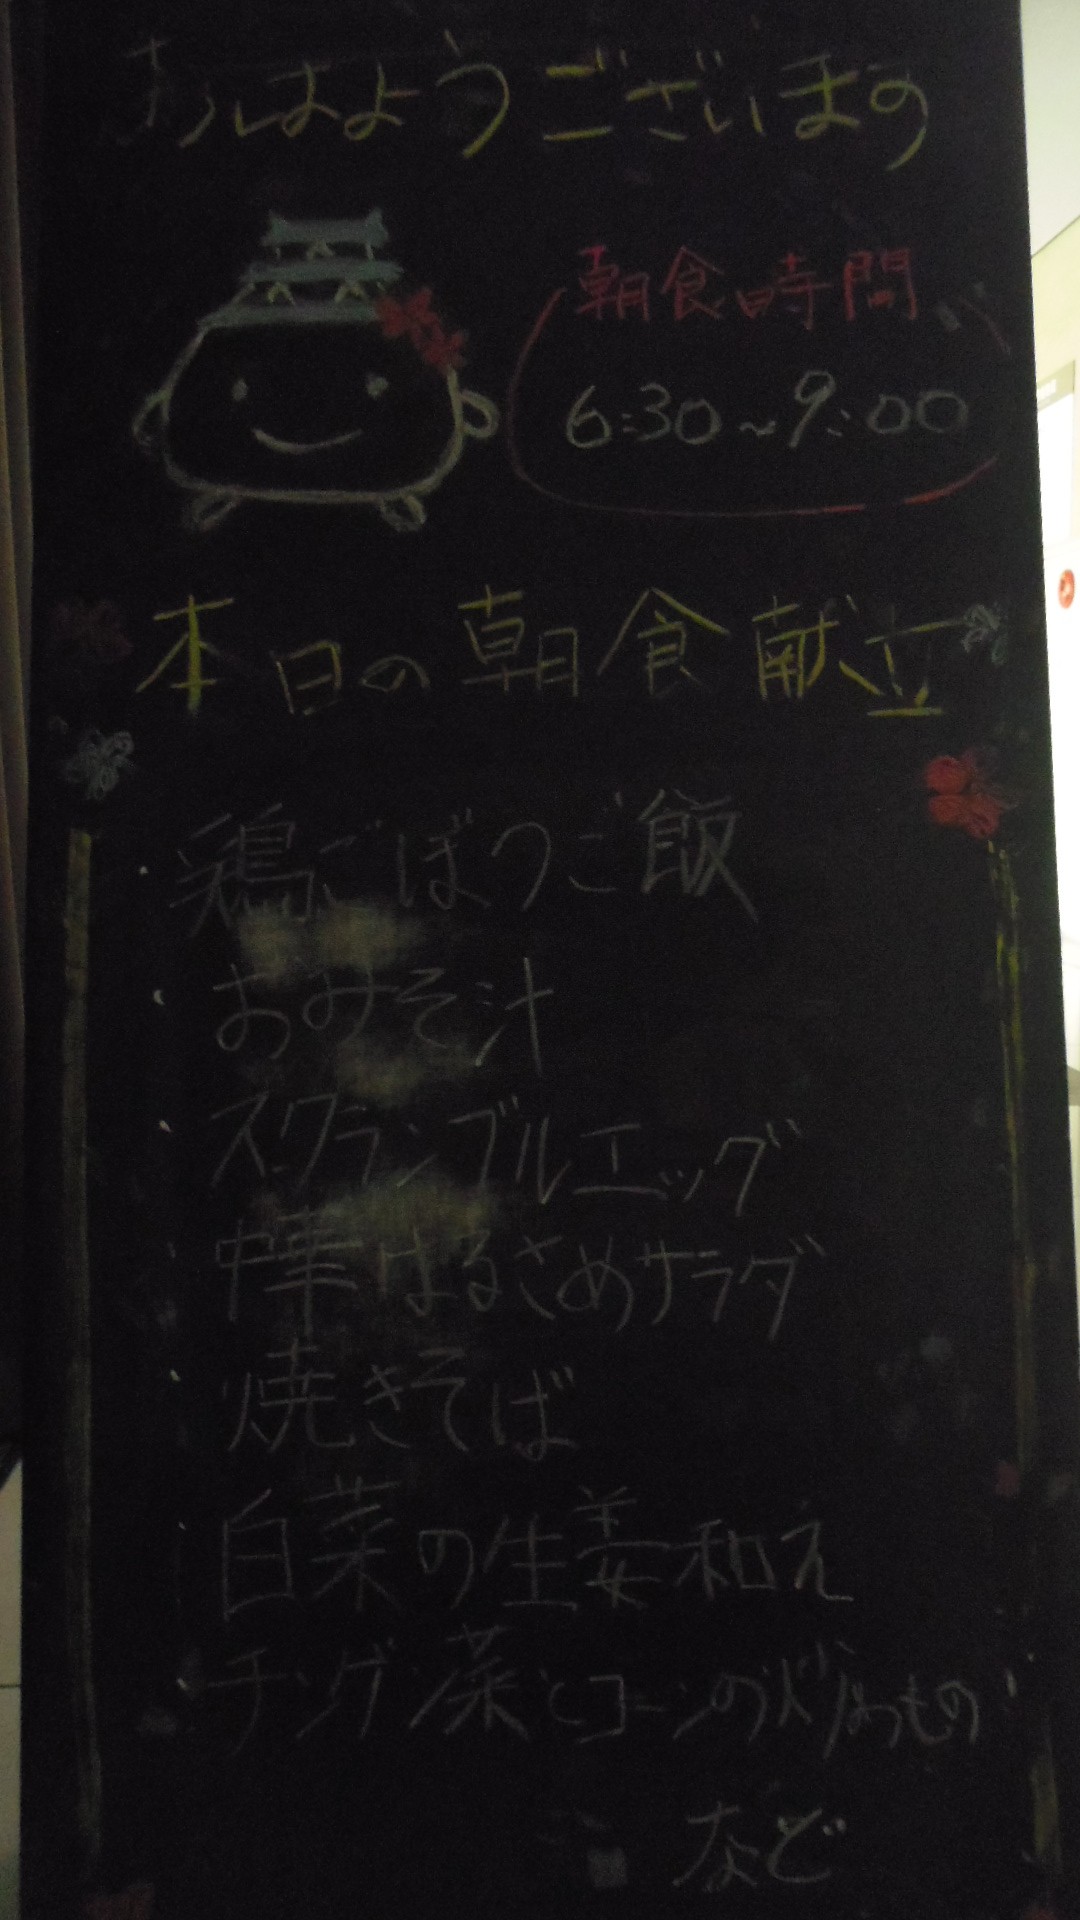 おはようございます
朝食時間
6:30~9:00
本日の朝食献立
・鶏ごぼうご飯
・おみそ汁
・スクランブルエッグ
・中華はるさめサラダ
・焼きそば
・白菜の生姜和え
・チンゲン菜とコーンの炒めもの
など